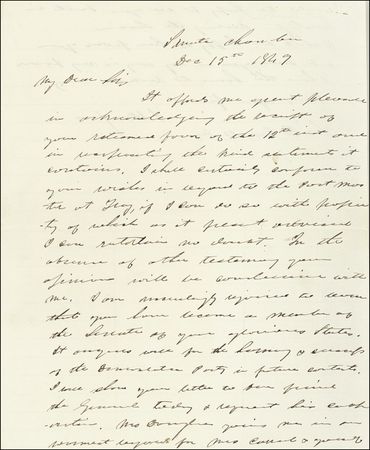 Senate Chamber
Dec 15th 1849
My Dear Sir,
It affords me great pleasure
in acknowledging the receipt of
your esteemed favor of the 12th inst and
in reciprocating the kind sentiments it
contains. I shall certainly conform to
your wishes in regard to the Post Mas
ter at Troy, if I can do so with proprie
ty of which as at present advised
I can entertain no doubt. In the
absence of other testimony your
opinions will be conclusive with
me. I am exceedingly rejoiced to learn
that you have become a member of
the Senate of your glorious State.
It augurs well for the harmony & success
of the Democratic Party in future contests.
I will show your letter to our friend
the General today & request his
Mrs Douglas joins me in
regard for Mrs & yourself